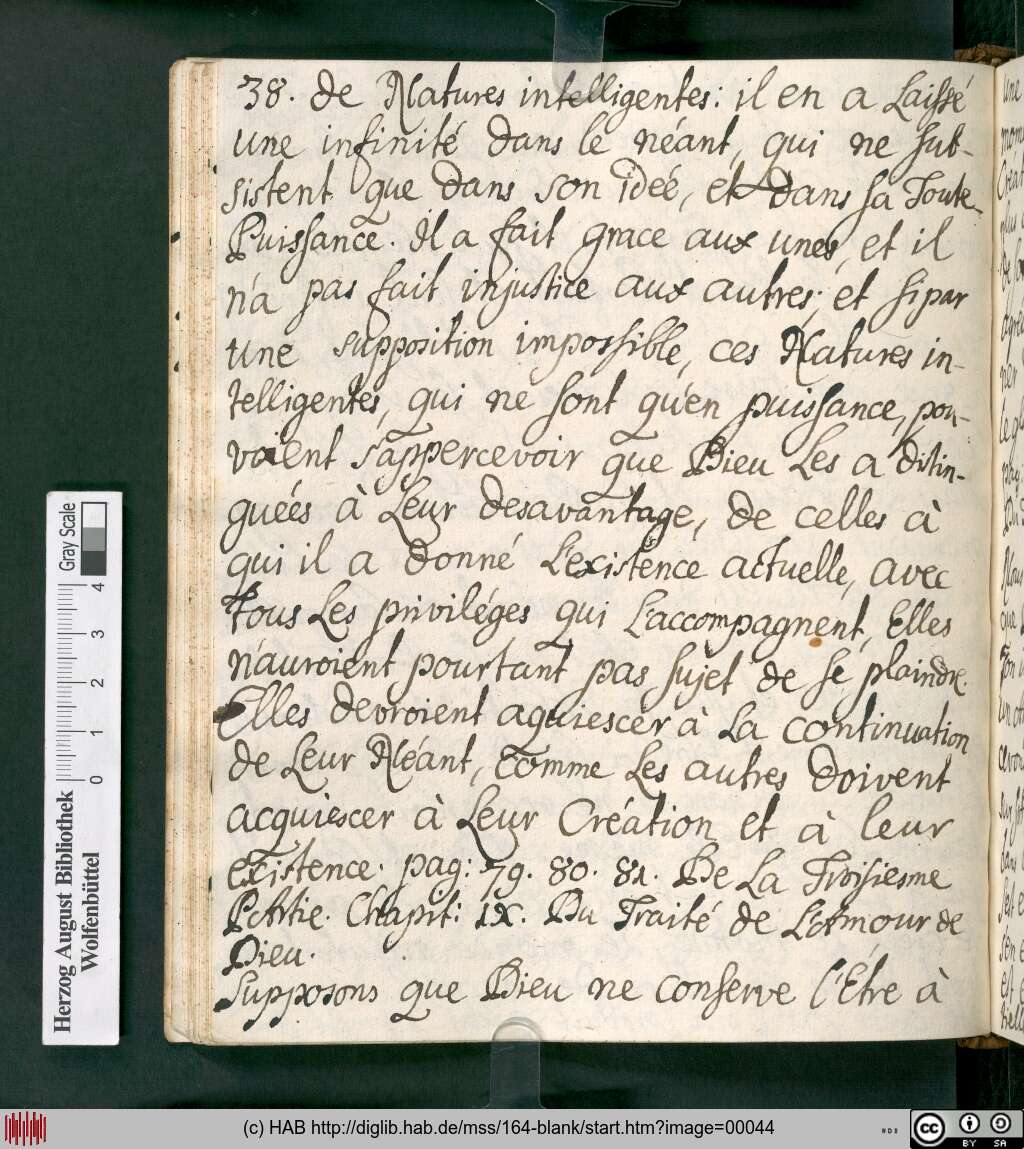 38. de Natures intelligentes: il en a Laissé
une infinité dans le néant, qui ne sub-
sistent que dans son ideé, et dans sa Toute-
Puissance. Il a fait grace aux unes, et il
n'a pas fait injustice aux autres; et si par
une supposition impossible, ces Natures in-
telligentes, qui ne sont qu'en puissance, pou-
voient s'appercevoir que Dieu Les a ditin-
gueés à Leur desavantage, de celles à
qui il a donné L'existence actuelle, avec
tous Les priviléges qui L'accompagnent, Elles
n'auroient pourtant pas sujet de se plaindre.
Elles devroient aquiescer à La continuation
de Leur Néant, comme Les autres doivent
acquiescer à Leur Création et à leur
existence. pag: 79. 80. 81. De La Troisiesme
Partie. Chapit: IX. Du Traité de L'Amour de
Dieu.
Supposons que Dieu ne conserve l'Etre à
Herzog August Bibliothek
Wolfenbüttel
Gray Scale
0 1 2 3 4
(c) HAB http://diglib.hab.de/mss/164-blank/start.htm?image=00044
cc BY SA